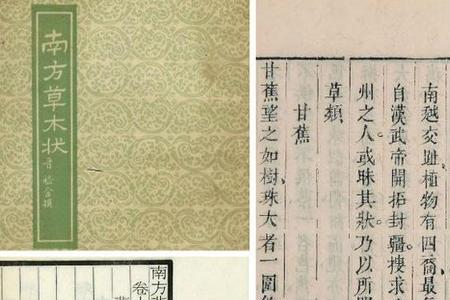 南方草木状
晋 嵇含撰
南越交趾植物有四裔最
自漢武帝開拓封疆搜求
州之人或昧其狀乃以所
草類
甘蕉
甘蕉望之如樹珠大者一圍
南方草
卷